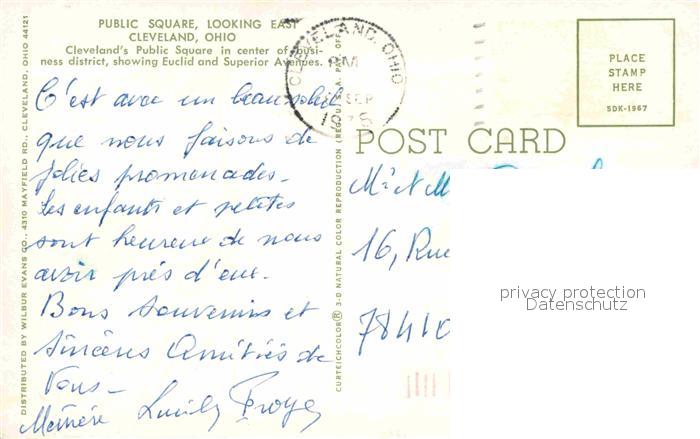 PUBLIC SQUARE, LOOKING EAST
CLEVELAND, OHIO
Cleveland's Public Square in center of busi-
ness district, showing Euclid and Superior Avenues.
C'est avec un beau soleil
que nous faisons de
jolies promenades.
Les enfants et petites
sont heureux de nous
avoir près d'eux.
Bons Souvenirs et
Sincères Amitiés de
Nous -
CLEVELAND, OHIO
PM
SEP
POST CARD
PLACE
STAMP
HERE
5DK-1967
Mr et M
16, Rue
78410
DISTRIBUTED BY WILBUR EVANS CO., 4310 MAYFIELD RD., CLEVELAND, OHIO 44121
CURTEICHCOLOR® 3-D NATURAL COLOR REPRODUCTION (REG. U.S.A. PAT. OFF.)
privacy protection
Datenschutz